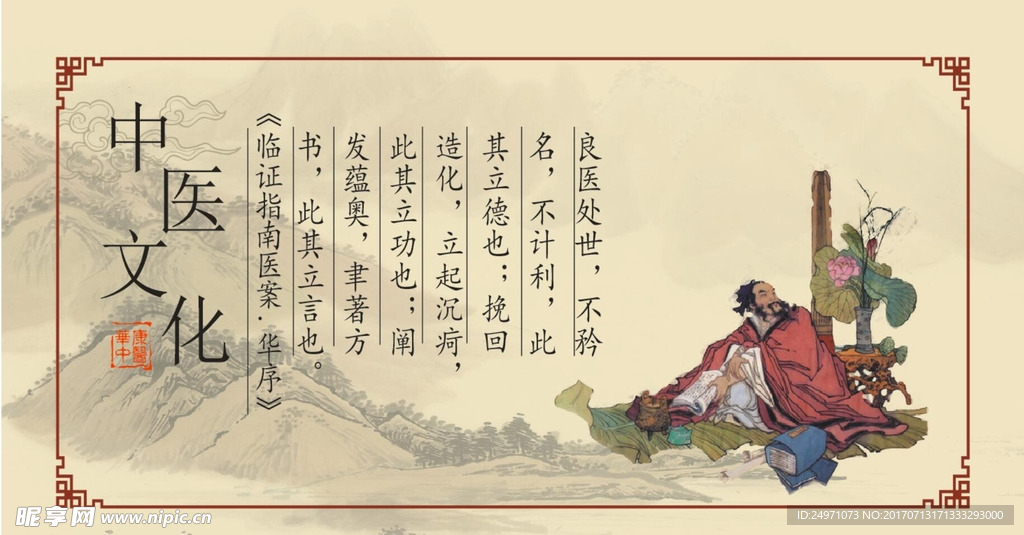 中医文化
康醫
華中
良医处世，不矜
名，不计利，此
其立德也；挽回
造化，立起沉疴，
此其立功也；阐
发蕴奥，聿著方
书，此其立言也。
《临证指南医案·华序》
昵享网 www.nipic.cn
ID:24971073 NO:20170713171333293000